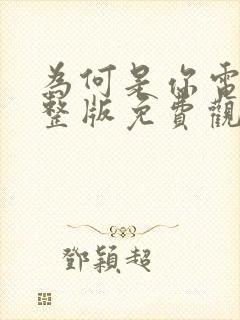 為何是你電
整版免費觀
鄧穎超